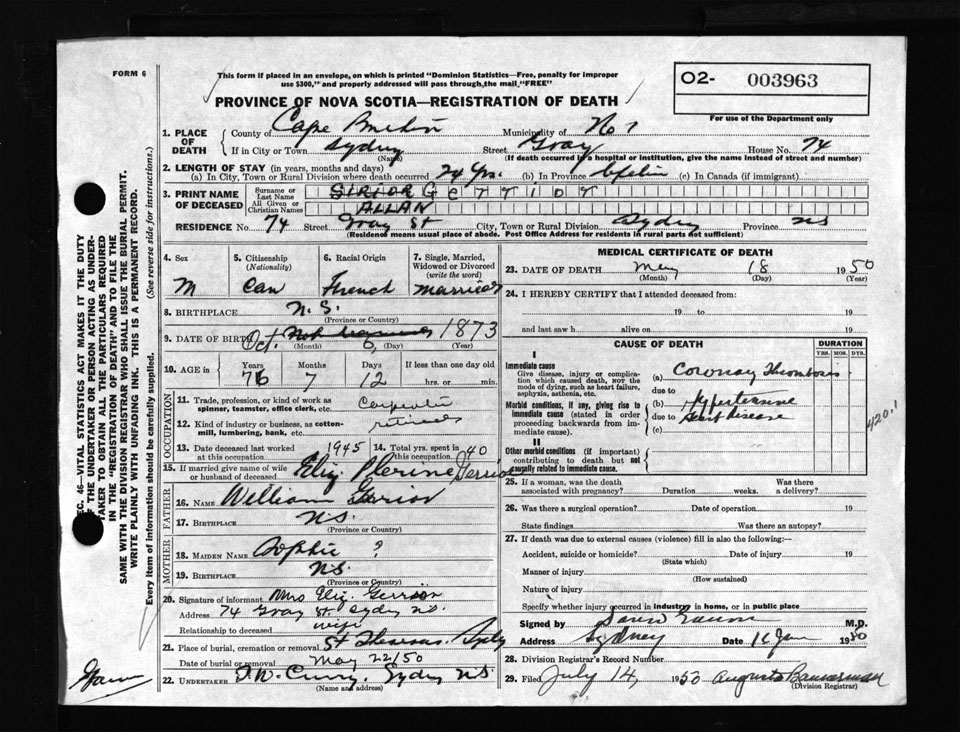 FORM 6
This form if placed in an envelope, on which is printed "Dominion Statistics—Free, penalty for improper
use $300," and properly addressed will pass through the mail "FREE"
O2- 003963
For use of the Department only
PROVINCE OF NOVA SCOTIA—REGISTRATION OF DEATH
SEC. 46—VITAL STATISTICS ACT MAKES IT THE DUTY
OF THE UNDERTAKER OR PERSON ACTING AS UNDER-
TAKER TO OBTAIN ALL THE PARTICULARS REQUIRED
IN THE "REGISTRATION OF DEATH" AND TO FILE THE
SAME WITH THE DIVISION REGISTRAR WHO SHALL ISSUE THE BURIAL PERMIT.
WRITE PLAINLY WITH UNFADING INK. THIS IS A PERMANENT RECORD.
Every item of information should be carefully supplied. (See reverse side for instructions.)
1. PLACE OF DEATH County of Cape Breton Municipality of No 7
If in City or Town Sydney Street Gray House No. 74
(Name) (If death occurred in a hospital or institution, give the name instead of street and number)
2. LENGTH OF STAY (in years, months and days)
(a) In City, Town or Rural Division where death occurred 24 yrs. (b) In Province Lifetime (c) In Canada (if immigrant)
3. PRINT NAME OF DECEASED Surname or Last Name GERRIOR Gerrior
All Given or Christian Names ALLAN
RESIDENCE No. 74 Street Gray St City, Town or Rural Division Sydney Province NS
(Residence means usual place of abode. Post Office Address for residents in rural parts not sufficient)
4. Sex M
5. Citizenship (Nationality) Can
6. Racial Origin French
7. Single, Married, Widowed or Divorced (write the word) Married
8. BIRTHPLACE N.S.
(Province or Country)
9. DATE OF BIRTH Oct. 6 1873
(Month) (Day) (Year)
10. AGE in Years 76 Months 7 Days 12 If less than one day old hrs. or min.
OCCUPATION
11. Trade, profession, or kind of work as spinner, teamster, office clerk, etc. Carpenter
12. Kind of industry or business, as cotton-mill, lumbering, bank, etc. retired
13. Date deceased last worked at this occupation 1945 14. Total yrs. spent in this occupation 40
15. If married give name of wife or husband of deceased Eliz Florine Gerrior
FATHER
16. NAME William Gerrior
17. BIRTHPLACE N.S.
(Province or Country)
MOTHER
18. MAIDEN NAME Sophie ?
19. BIRTHPLACE N.S.
(Province or Country)
20. Signature of informant Mrs Eliz. Gerrior
Address 74 Gray St. Sydney N.S.
Relationship to deceased wife
21. Place of burial, cremation or removal St Theresas Sydney
Date of burial or removal May 22/50
22. UNDERTAKER T.W. Curry, Sydney N.S.
(Name and address)
MEDICAL CERTIFICATE OF DEATH
23. DATE OF DEATH May 18 1950
(Month) (Day) (Year)
24. I HEREBY CERTIFY that I attended deceased from:
19 to 19
and last saw h alive on 19
CAUSE OF DEATH DURATION
YRS. MOS. DYS.
I
Immediate cause
Give disease, injury or complication which caused death, NOT the mode of dying, such as heart failure, asphyxia, asthenia, etc.
(a) Coronary Thrombosis
due to
Morbid conditions, if any, giving rise to immediate cause (stated in order proceeding backwards from immediate cause).
(b) Hypertensive
due to Heart disease
(c)
420.1
II
Other morbid conditions (if important) contributing to death but not causally related to immediate cause.
25. If a woman, was the death associated with pregnancy? Duration weeks. Was there a delivery?
26. Was there a surgical operation? Date of operation 19
State findings Was there an autopsy?
27. If death was due to external causes (violence) fill in also the following:—
Accident, suicide or homicide? Date of injury 19
(State which)
Manner of injury
(How sustained)
Nature of injury
Specify whether injury occurred in industry, in home, or in public place
Signed by M.D.
Address Sydney Date 16 Jan 1950
28. Division Registrar's Record Number
29. Filed July 14, 1950 Augusta Bannerman
(Division Registrar)